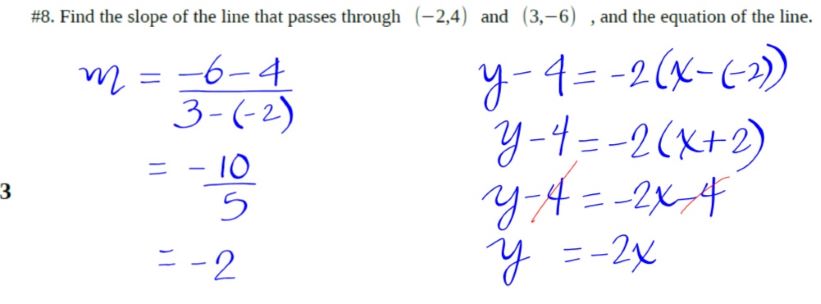 #8. Find the slope of the line that passes through (−2,4) and (3,−6) , and the equation of the line.
m = −6−4 / 3−(−2)
= −10/5
= −2
3
y−4 = −2(x−(−2))
y−4 = −2(x+2)
y−4 = −2x−4
y = −2x